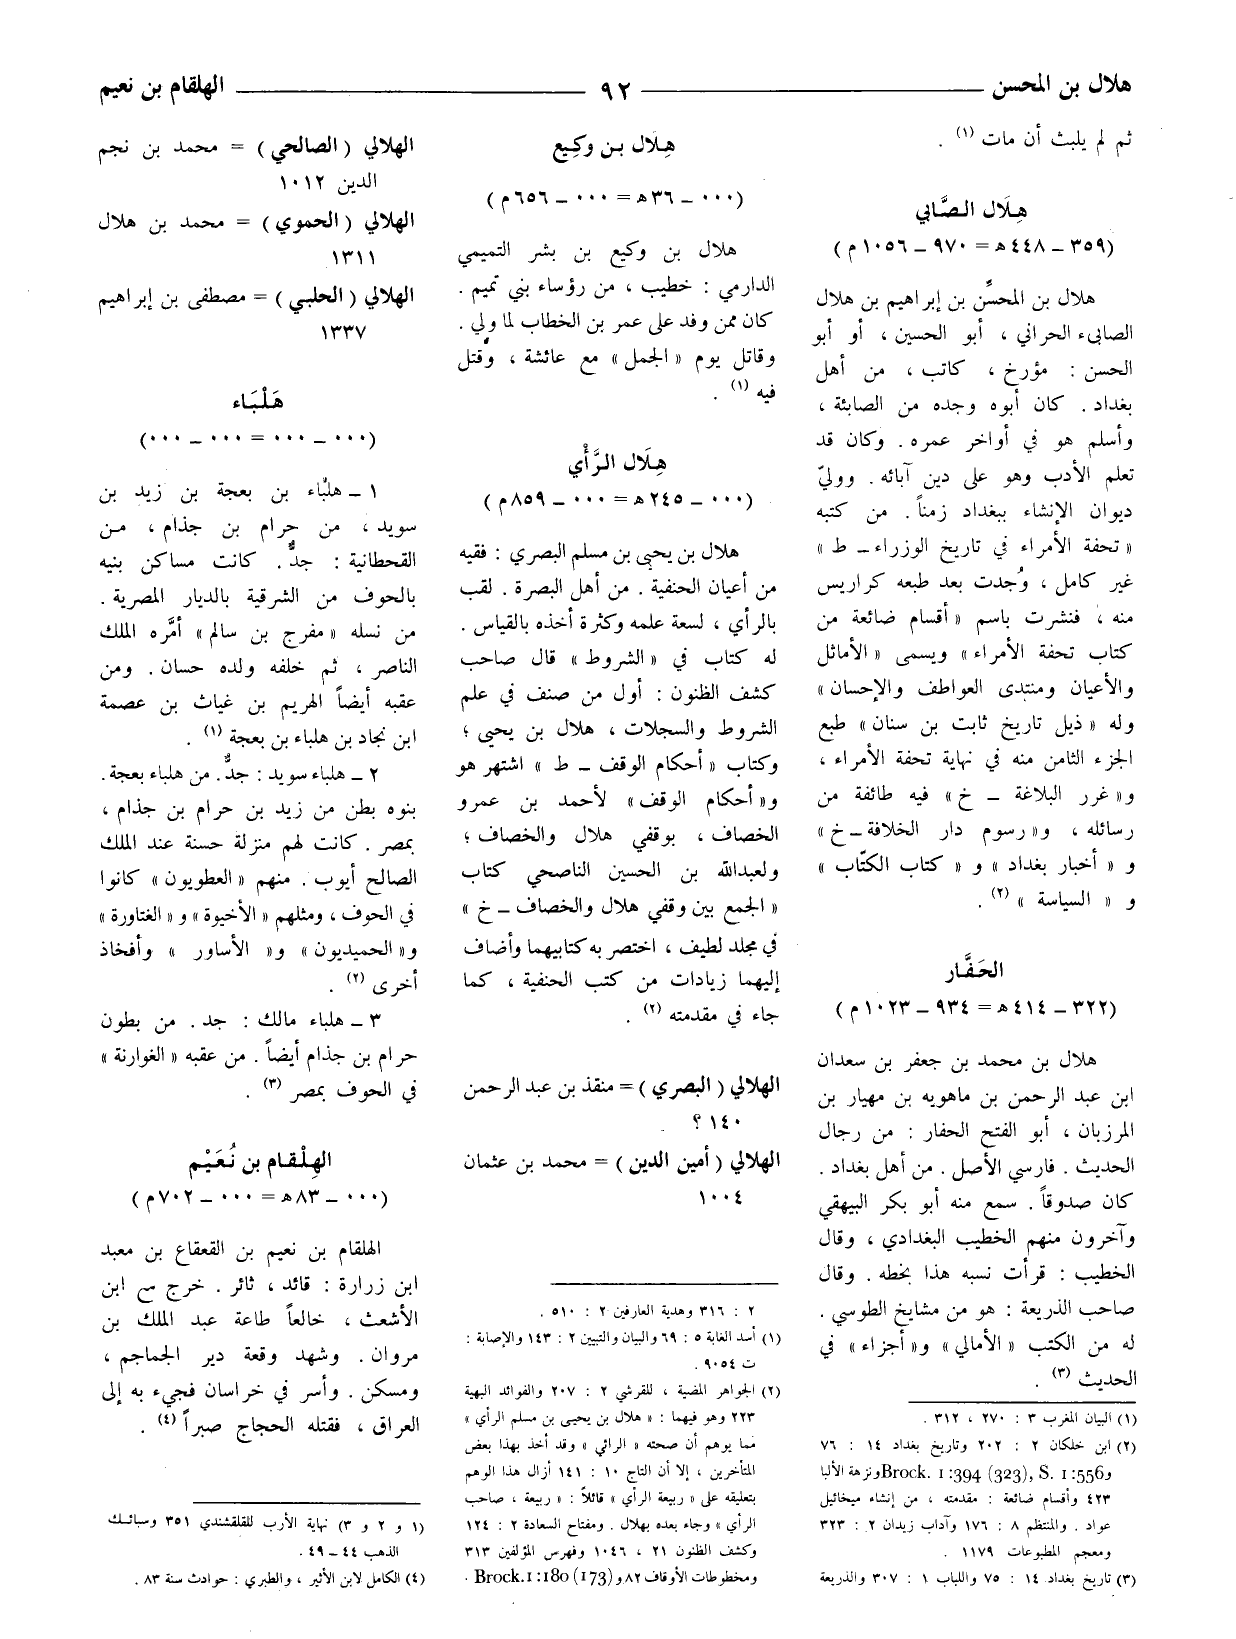 هلال بن المحسن ٩٢ الهلقام بن نعيم
ثم لم يلبث أن مات (١) .
هِلَال الصَّابي
(٣٥٩ ــ ٤٤٨ ه‍ = ٩٧٠ ــ ١٠٥٦ م)
هلال بن المحسِّن بن إبراهيم بن هلال
الصابىء الحراني ، أبو الحسين ، أو أبو
الحسن : مؤرخ ، كاتب ، من أهل
بغداد . كان أبوه وجده من الصابئة ،
وأسلم هو في أواخر عمره . وكان قد
تعلم الأدب وهو على دين آبائه . ووليّ
ديوان الإنشاء ببغداد زمناً . من كتبه
« تحفة الأمراء في تاريخ الوزراء ــ ط »
غير كامل ، وُجدت بعد طبعه كراريس
منه ، فنشرت باسم « أقسام ضائعة من
كتاب تحفة الأمراء » ويسمى « الأماثل
والأعيان ومنتدى العواطف والإحسان »
وله « ذيل تاريخ ثابت بن سنان » طبع
الجزء الثامن منه في نهاية تحفة الأمراء ،
و« غرر البلاغة ــ خ » فيه طائفة من
رسائله ، و« رسوم دار الخلافة ــ خ »
و « أخبار بغداد » و « كتاب الكتّاب »
و « السياسة » (٢) .
الحَفَّار
(٣٢٢ ــ ٤١٤ ه‍ = ٩٣٤ ــ ١٠٢٣ م)
هلال بن محمد بن جعفر بن سعدان
ابن عبد الرحمن بن ماهويه بن مهيار بن
المرزبان ، أبو الفتح الحفار : من رجال
الحديث . فارسي الأصل . من أهل بغداد .
كان صدوقاً . سمع منه أبو بكر البيهقي
وآخرون منهم الخطيب البغدادي ، وقال
الخطيب : قرأت نسبه هذا بخطه . وقال
صاحب الذريعة : هو من مشايخ الطوسي .
له من الكتب « الأمالي » و« أجزاء » في
الحديث (٣) .
(١) البيان المغرب ٣ : ٢٧٠ ، ٣١٢ .
(٢) ابن خلكان ٢ : ٢٠٢ وتاريخ بغداد ١٤ : ٧٦
وBrock. 1:394 (323), S. 1:556 ونزهة الألبا
٤٢٣ وأقسام ضائعة : مقدمته ، من إنشاء ميخائيل
عواد . والمنتظم ٨ : ١٧٦ وآداب زيدان ٢ : ٣٢٣
ومعجم المطبوعات ١١٧٩ .
(٣) تاريخ بغداد ١٤ : ٧٥ واللباب ١ : ٣٠٧ والذريعة
هِلال بن وكِيع
(٠٠٠ ــ ٣٦ ه‍ = ٠٠٠ ــ ٦٥٦ م)
هلال بن وكيع بن بشر التميمي
الدارمي : خطيب ، من رؤساء بني تميم .
كان ممن وفد على عمر بن الخطاب لما ولي .
وقاتل يوم « الجمل » مع عائشة ، وقُتل
فيه (١) .
هِلَال الرَّأْي
(٠٠٠ ــ ٢٤٥ ه‍ = ٠٠٠ ــ ٨٥٩ م)
هلال بن يحيى بن مسلم البصري : فقيه
من أعيان الحنفية . من أهل البصرة . لقب
بالرأي ، لسعة علمه وكثرة أخذه بالقياس .
له كتاب في « الشروط » قال صاحب
كشف الظنون : أول من صنف في علم
الشروط والسجلات ، هلال بن يحيى ؛
وكتاب « أحكام الوقف ــ ط » اشتهر هو
و« أحكام الوقف » لأحمد بن عمرو
الخصاف ، بوقفي هلال والخصاف ؛
ولعبدالله بن الحسين الناصحي كتاب
« الجمع بين وقفي هلال والخصاف ــ خ »
في مجلد لطيف ، اختصر به كتابيهما وأضاف
إليهما زيادات من كتب الحنفية ، كما
جاء في مقدمته (٢) .
الهلالي ( البصري ) = منقذ بن عبد الرحمن
١٤٠ ؟
الهلالي ( أمين الدين ) = محمد بن عثمان
١٠٠٤
٢ : ٣١٦ وهدية العارفين ٢ : ٥١٠ .
(١) أسد الغابة ٥ : ٦٩ والبيان والتبيين ٢ : ١٤٣ والإصابة :
ت ٩٠٥٤ .
(٢) الجواهر المضية ، للقرشي ٢ : ٢٠٧ والفوائد البهية
٢٢٣ وهو فيهما : « هلال بن يحيى بن مسلم الرأي »
مما يوهم أن صحته « الرائي » وقد أخذ بهذا بعض
المتأخرين ، إلا أن التاج ١٠ : ١٤١ أزال هذا الوهم
بتعليقه على « ربيعة الرأي » قائلاً : « ربيعة ، صاحب
الرأي » وجاء بعده بهلال . ومفتاح السعادة ٢ : ١٢٤
وكشف الظنون ٢١ ، ١٠٤٦ وفهرس المؤلفين ٣١٣
ومخطوطات الأوقاف ٨٢ و Brock.1:180 (173) .
الهلالي ( الصالحي ) = محمد بن نجم
الدين ١٠١٢
الهلالي ( الحموي ) = محمد بن هلال
١٣١١
الهلالي ( الحلبي ) = مصطفى بن إبراهيم
١٣٣٧
هَلْبَاء
(٠٠٠ ــ ٠٠٠ = ٠٠٠ ــ ٠٠٠)
١ ــ هلبُاء بن بعجة بن زيد بن
سويد ، من حرام بن جذام ، من
القحطانية : جدٌّ . كانت مساكن بنيه
بالحوف من الشرقية بالديار المصرية .
من نسله « مفرج بن سالم » أمَّره الملك
الناصر ، ثم خلفه ولده حسان . ومن
عقبه أيضاً الهريم بن غياث بن عصمة
ابن نجاد بن هلباء بن بعجة (١) .
٢ ــ هلباء سويد : جدٌّ . من هلباء بعجة .
بنوه بطن من زيد بن حرام بن جذام ،
بمصر . كانت لهم منزلة حسنة عند الملك
الصالح أيوب . منهم « العطويون » كانوا
في الحوف ، ومثلهم « الأخيوة » و « الغتاورة »
و« الحميديون » و« الأساور » وأفخاذ
أخرى (٢) .
٣ ــ هلباء مالك : جد . من بطون
حرام بن جذام أيضاً . من عقبه « الغوارنة »
في الحوف بمصر (٣) .
الهِلْقام بن نُعَيْم
(٠٠٠ ــ ٨٣ ه‍ = ٠٠٠ ــ ٧٠٢ م)
الهلقام بن نعيم بن القعقاع بن معبد
ابن زرارة : قائد ، ثائر . خرج مع ابن
الأشعث ، خالعاً طاعة عبد الملك بن
مروان . وشهد وقعة دير الجماجم ،
ومسكن . وأسر في خراسان فجيء به إلى
العراق ، فقتله الحجاج صبراً (٤) .
(١ و ٢ و ٣) نهاية الأرب للقلقشندي ٣٥١ وسبائك
الذهب ٤٤ ــ ٤٩ .
(٤) الكامل لابن الأثير ، والطبري : حوادث سنة ٨٣ .